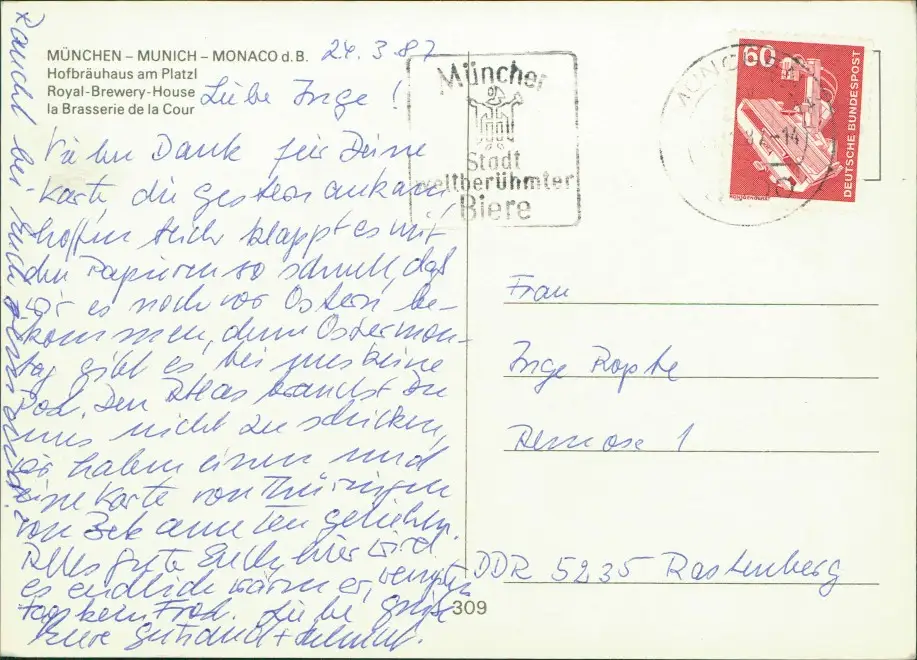 MÜNCHEN – MUNICH – MONACO d. B.
Hofbräuhaus am Platzl
Royal-Brewery-House
la Brasserie de la Cour
24.3.87
Liebe Inge!
Vielen Dank für Deine
Karte, die gestern ankam,
hoffentlich klappt es mit
den Papieren so schnell, daß
wir es noch vor Ostern be-
kommen, denn Ostermon-
tag gibt es bei uns keine
Post. Den Atlas brauchst Du
uns nicht zu schicken,
wir haben einen und
eine Karte von Thüringen
von Bekannten geliehen.
Alles gute Euch, hier wird
es endlich wärmer, wenigstens
tags kein Frost. Liebe Grüße
Eure Gertraud + Helmut.
Raucht bei Euch
München
Stadt
weltberühmter
Biere
60
DEUTSCHE BUNDESPOST
Frau
Inge Ropte
1
DDR 5235 Rastenberg
309